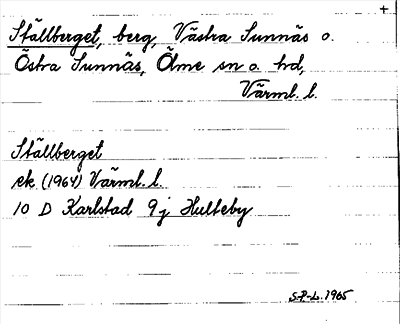 +
Ställberget, berg, Västra Sunnäs o.
Östra Sunnäs, Ölme sn o. hd,
Värml. l.
Ställberget
ek (1964) Värml. l.
10 D Karlstad 9j Hulteby
S.P-L. 1965